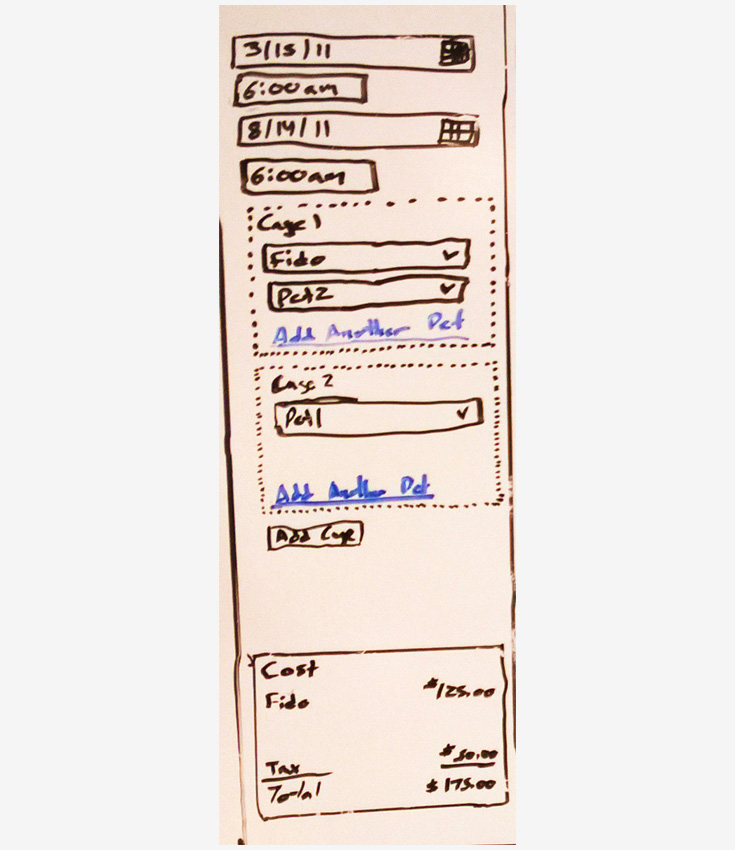 3/15/11
6:00am
8/14/11
6:00am
Cage 1
Fido
Pet2
Add Another Pet
Cage 2
Pet1
Add Another Pet
Add Cage
Cost
Fido $125.00
Tax $50.00
Total $175.00